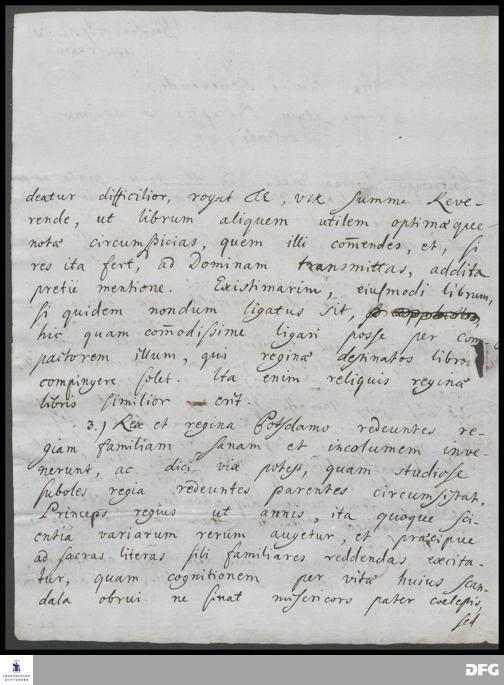 deatur difficilior, rogat Te, vir summe Reve-
rende, ut librum aliquem utilem optimæque
notæ circumspicias, quem illi com̄endes, et, si
res ita fert, ad Dominam transmittas, addita
pretii mentione. Existimarim, eiusmodi librum,
si quidem nondum ligatus sit,
hic quam com̄odissime ligari posse per com
pactorem illum, qui reginæ destinatos libros
compingere solet. Ita enim reliquis reginæ
libris similior erit.
3.) Rex et regina Potsdamo redeuntes re-
giam familiam sanam et incolumem inve-
nerunt, ac dici vix potest, quam studiose
suboles regia redeuntes parentes circumsistat.
Princeps regius ut annis, ita quoque sci-
entia variarum rerum augetur, et præcipue
ad sacras literas sibi familiares reddendas excita-
tur, quam cognitionem per vitæ huius scan-
dala obrui ne sinat misericors pater coelestis,
sed
FRANCKESCHE
STIFTUNGEN
DFG